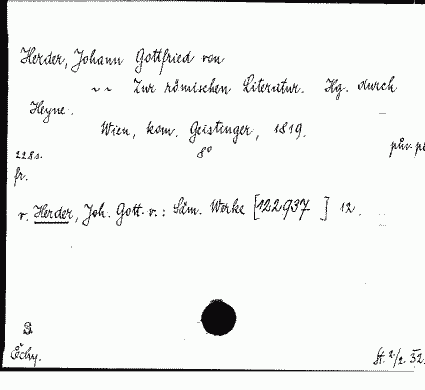 Herder, Johann Gottfried von
~ ~ Zur römischen Literatur. Hg. durch
Heyne.
Wien, kom. Geistinger, 1819.
228 s. 8°
pův. p
fr.
v. Herder, Joh. Gott. v.: Säm. Werke [122937 ] 12.
Čchy. St. 2/2 32.